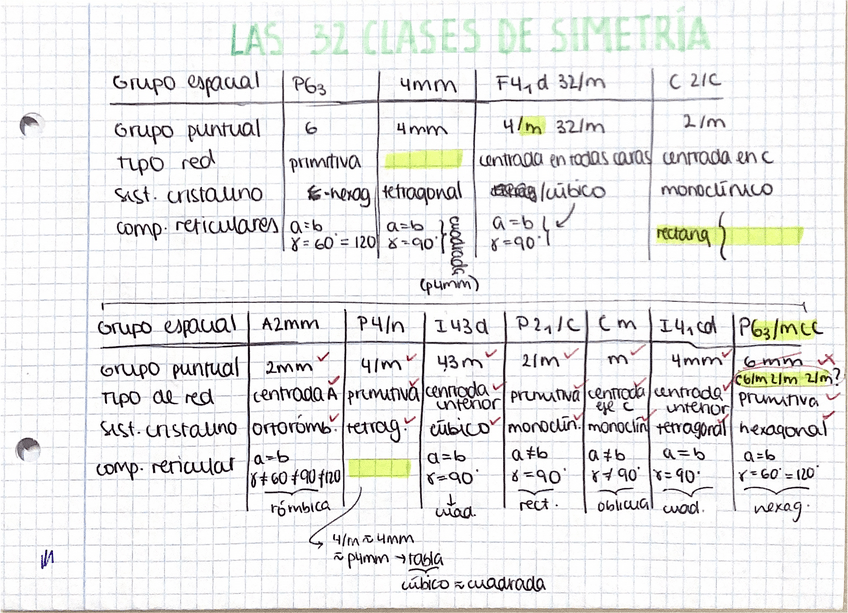 LAS 32 CLASES DE SIMETRÍA
Grupo espacial P6₃ 4mm F4₁ d 32/m C 2/C
Grupo puntual 6 4mm 4/m 32/m 2/m
Tipo red primitiva centrada en todas caras centrada en c
Sist. cristalino hexag tetragonal /cúbico monoclínico
comp. reticulares a=b a=b a=b
γ=60°=120 γ=90° γ=90°
cuadrada
rectang
(p4mm)
Grupo espacial A2mm P4/n I43d P2₁/C Cm I4₁cd P6₃/mcc
Grupo puntual 2mm 4/m 43m 2/m m 4mm 6mm
C6/m 2/m 2/m?
Tipo de red centrada A primitiva centrada interior primitiva centrada eje C centrada interior primitiva
Sist. cristalino ortorómb. tetrag. cúbico monoclín. monoclín tetragonal hexagonal
comp. reticular a=b a=b a≠b a≠b a=b a=b
γ≠60≠90≠120 γ=90° γ=90° γ≠90° γ=90° γ=60°=120°
rómbica cuad. rect. oblicua cuad. hexag.
4/m ≈ 4mm
≈ p4mm → tabla
cúbico ≈ cuadrada